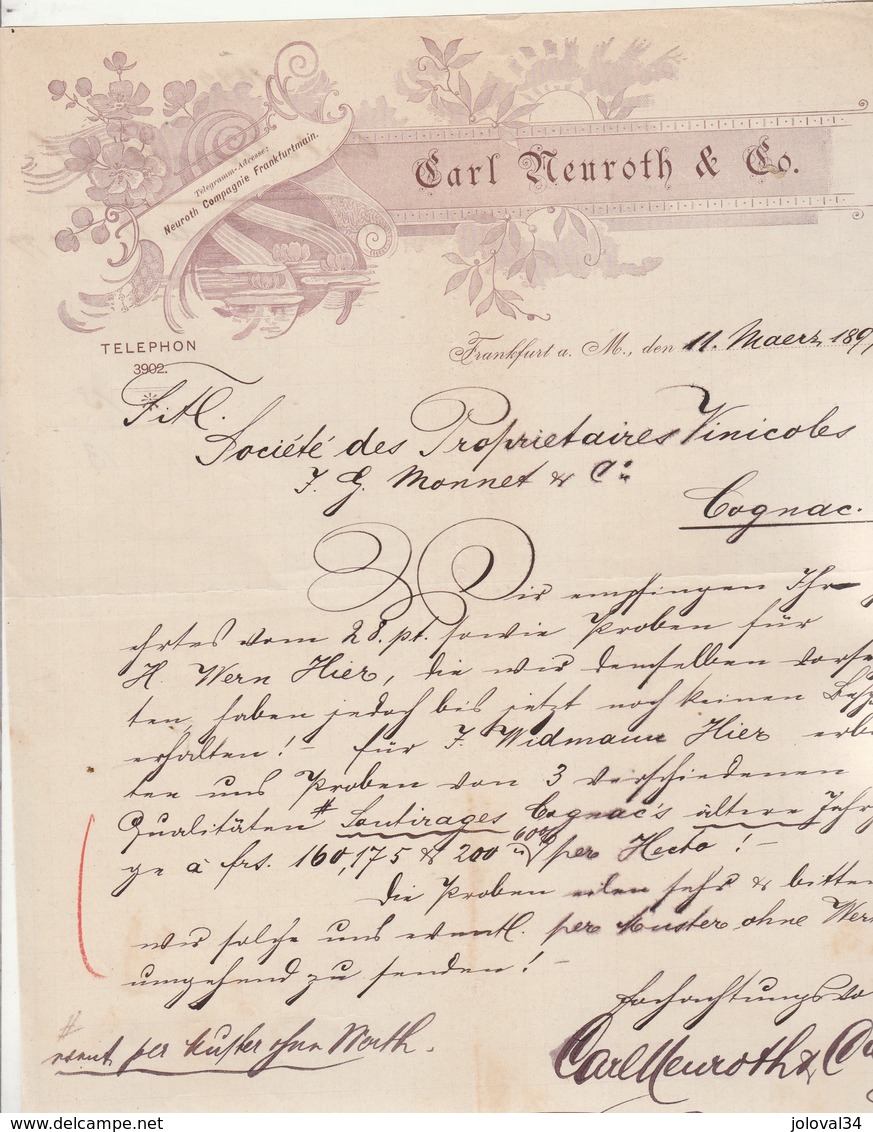 Telegramm-Adresse:
Neuroth Compagnie Frankfurtmain.
Carl Neuroth & Co.
TELEPHON
3902.
Frankfurt a. M., den 11. Maerz 189
Titl.
Société des Proprietaires Vinicoles
J. G. Monnet & Cie
Cognac.
Wir empfingen Ihr
ehrtes vom 28. pt. sowie Proben für
H. Wern Hier, die wir demselben vorse
ten, haben jedoch bis jetzt noch keinen
erhalten! – für J. Widmann Hier erbi
ten uns Proben von 3 verschiedenen
Qualitäten # Soutirages Cognac's ältere Jahr
ge à frs. 160, 175 & 200 60% per Hecto! –
Die Proben eilen sehr & bitten
wir solche uns eventl. per Muster ohne Wert
umgehend zu senden! –
Hochachtungsvo
Carl Neuroth & Co
# event. per Muster ohne Werth.
delcampe.net
joloval34